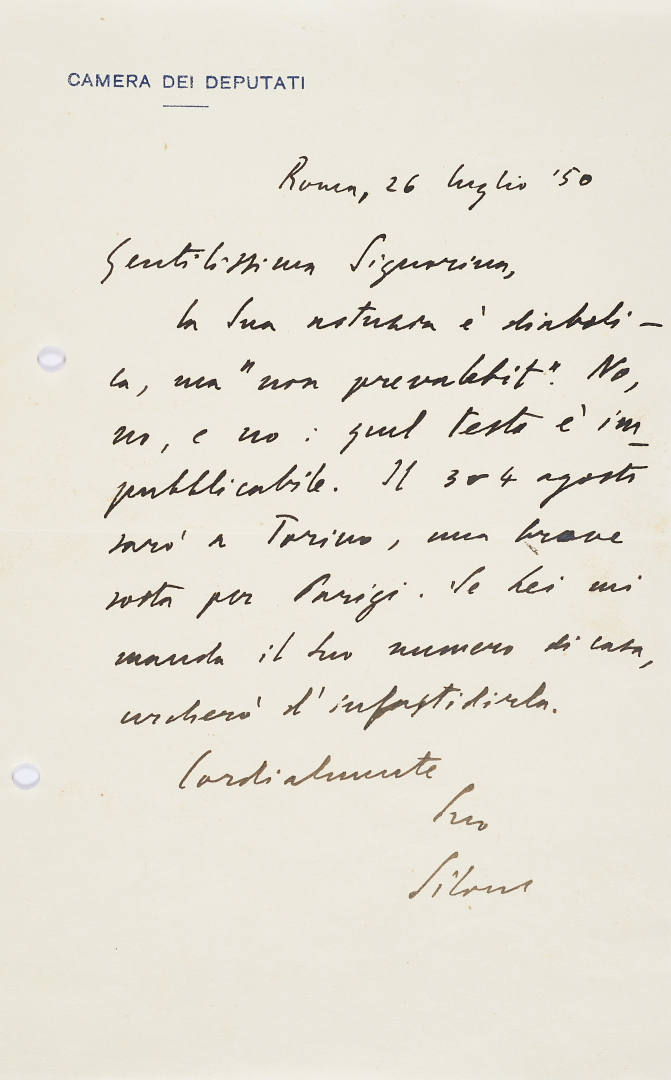 CAMERA DEI DEPUTATI
Roma, 26 luglio '50
Gentilissima Signorina,
la Sua natura è diaboli-
ca, ma "non prevalebit". No,
no, e no: quel testo è im
pubblicabile. Il 3 o 4 agosto
sarò a Torino, una breve
sosta per Parigi. Se Lei mi
manda il Suo numero di casa,
cercherò d'infastidirla.
Cordialmente
Suo
Silone